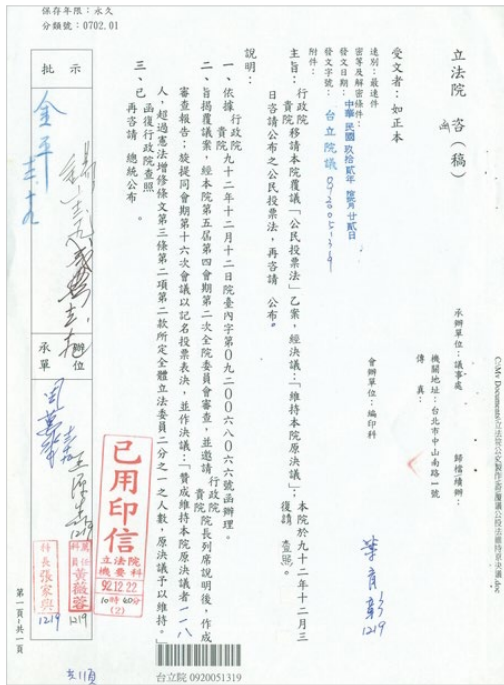 保存年限：永久
分類號：0702.01
立法院　咨（稿）
函
承辦單位：議事處　歸檔續辦：
機關地址：台北市中山南路一號
傳　真：
受文者：如正本
速別：最速件
密等及解密條件：
發文日期：中華民國玖拾貳年拾貳月廿貳日
發文字號：台立院議字0920051319
附件：
會辦單位：編印科
葉育彰
1219
主旨：行政院
貴院移請本院覆議「公民投票法」乙案，經決議：「維持本院原決議」；本院於九十二年十二月三
復請　查照。
日咨請公布之公民投票法，再咨請　公布。
說明：
一、依據行政院
貴院九十二年十二月十二日院臺內字第０九二００六八０六六號函辦理。
二、旨揭覆議案，經本院第五屆第四會期第二次全院委員會審查，並邀請行政院
貴院院長列席說明後，作成
審查報告；旋提同會期第十六次會議以記名投票表決，並作決議：「贊成維持本院原決議者一一八
人，超過憲法增修條文第三條第二項第二款所定全體立法委員二分之一之人數，原決議予以維持。」
三、已函復行政院查照
再咨請　總統公布。
批示
承辦單位
已用印信
立法院
機要科
92.12.22
10時40分
(2)
科員
黃薇蓉
1219
科長張家興
1219
第一頁‧共一頁
共11頁
台立院 0920051319